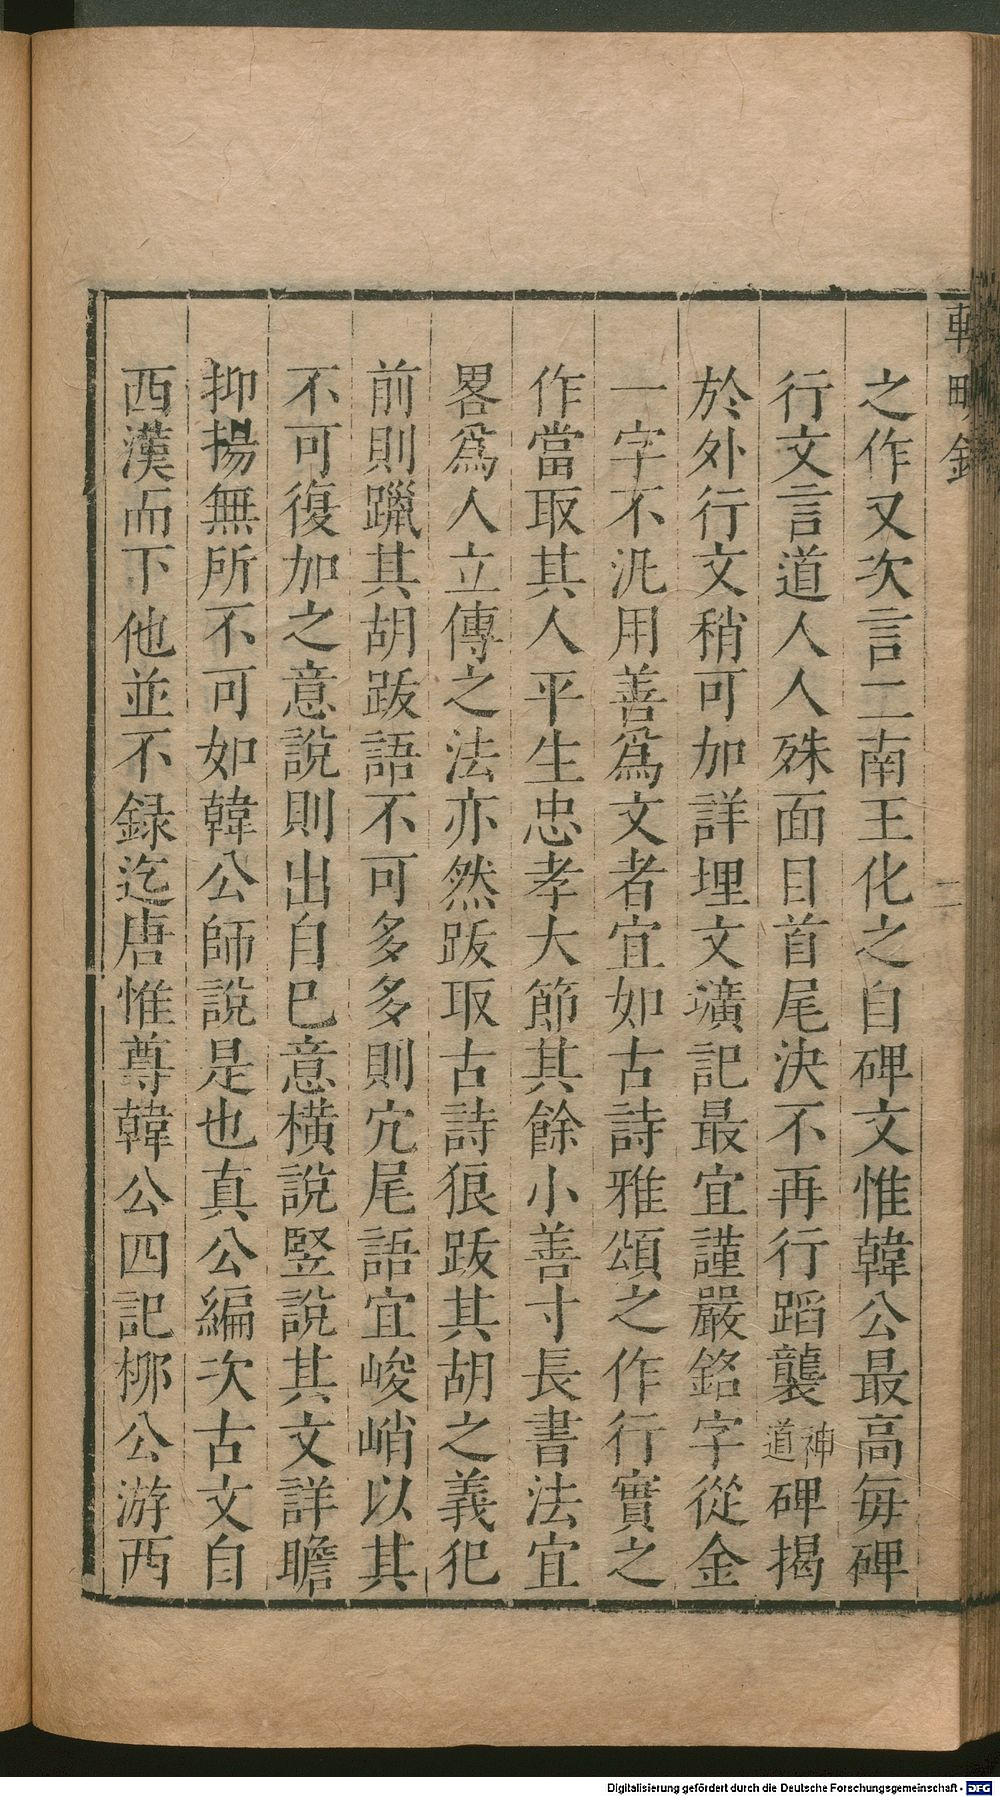 之作又次言二南王化之自碑文惟韓公最高每碑
行文言道人人殊面目首尾決不再行蹈襲神道碑揭
於外行文稍可加詳埋文壙記最宜謹嚴銘字從金
一字不汎用善爲文者宜如古詩雅頌之作行實之
作當取其人平生忠孝大節其餘小善寸長書法宜
畧爲人立傳之法亦然跋取古詩狼跋其胡之義犯
前則躐其胡跋語不可多多則冗尾語宜峻峭以其
不可復加之意說則出自己意橫說竪說其文詳贍
抑揚無所不可如韓公師說是也真公編次古文自
西漢而下他並不録迄唐惟尊韓公四記柳公游西
二
Digitalisierung gefördert durch die Deutsche Forschungsgemeinschaft - DFG